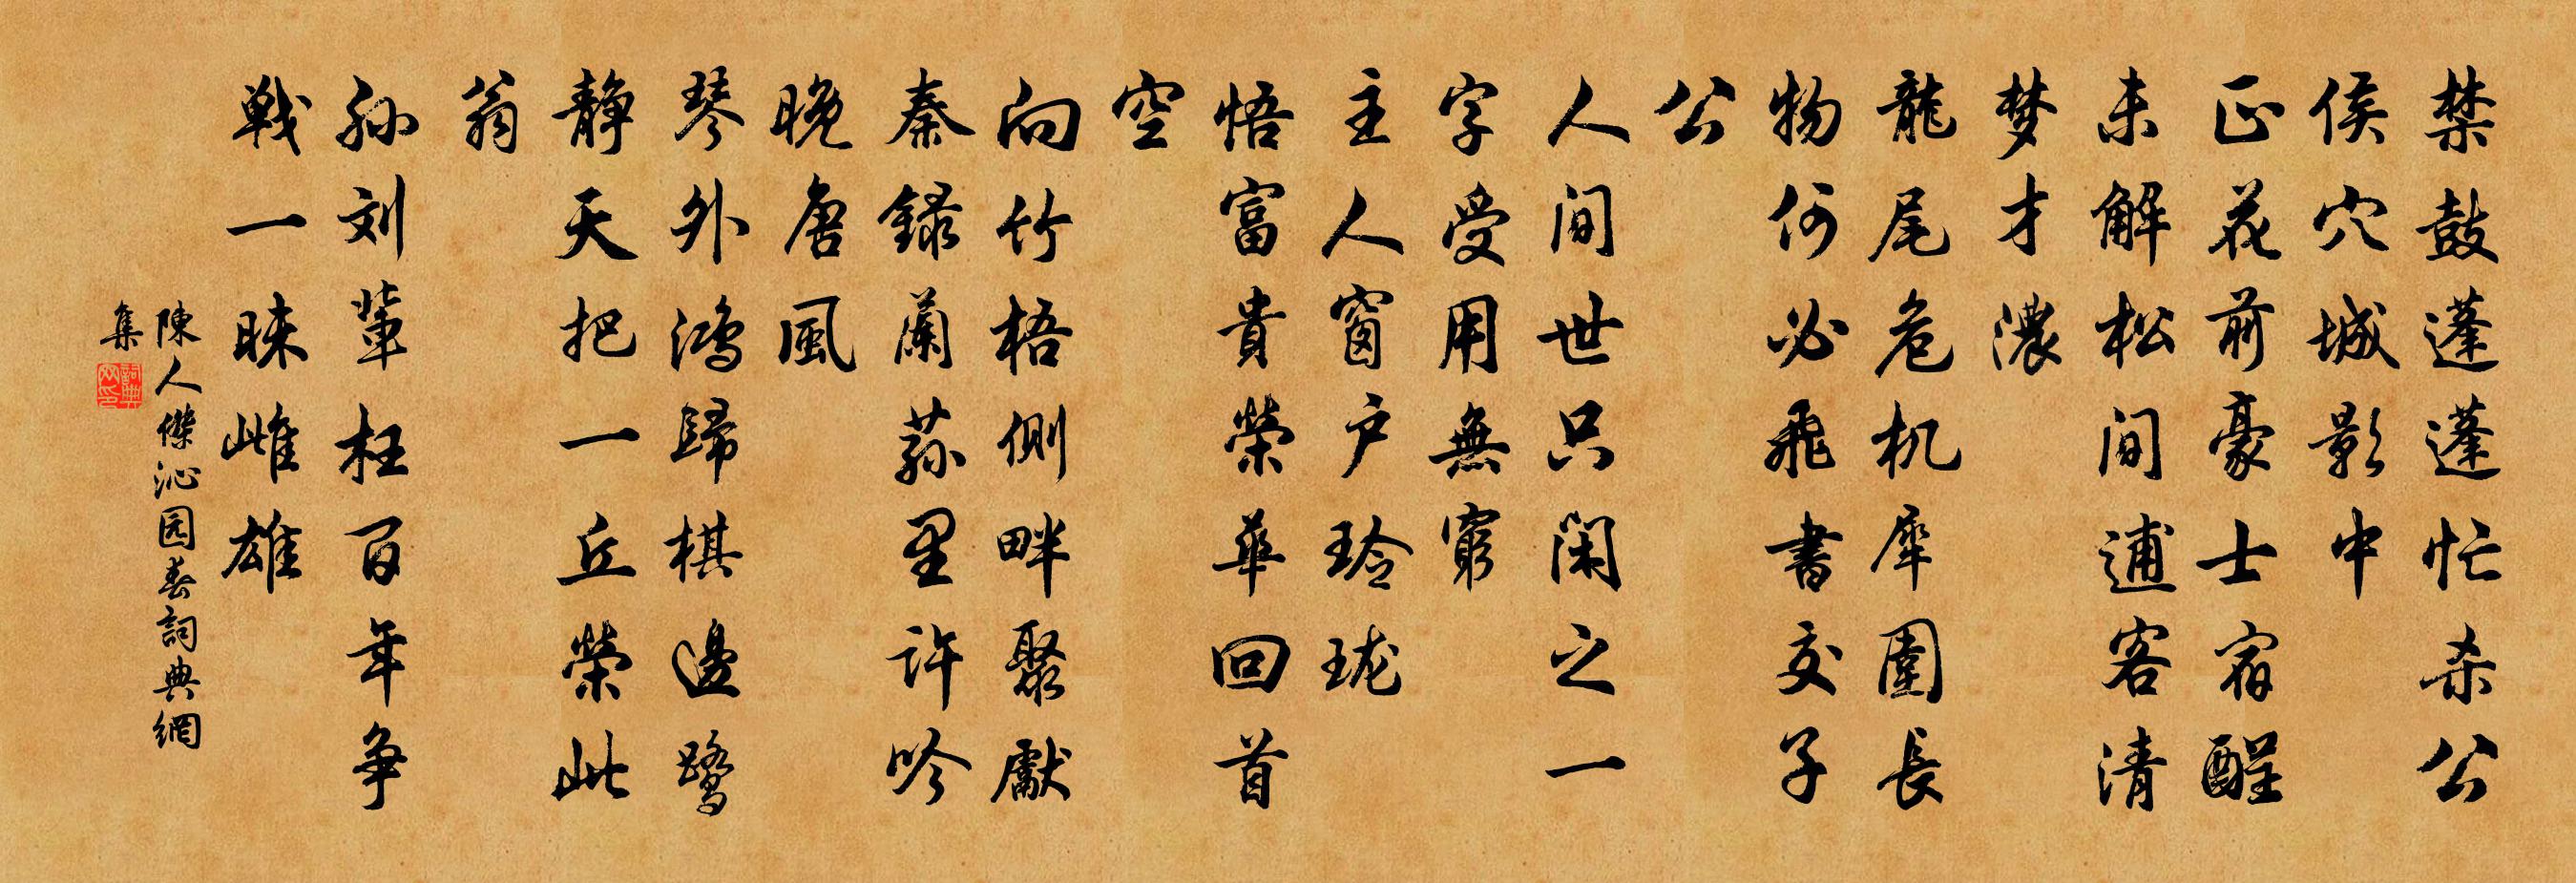 禁鼓蓬蓬忙杀公
侯穴城影中
正花前豪士宿醒
未解松间逋客清
梦才濃
龍尾危机犀圍長
物何必飛書交子
公
人间世只闲之一
字受用無窮
主人窗户玲珑
悟富貴榮華回首
空
向竹梧側畔聚獻
秦録蘭蓀里許吟
晚唐風
琴外鴻歸棋邊鷺
静天把一丘榮此
翁
孙刘輩枉百年争
戦一睐雌雄
陳人傑沁园春詞典網
集
詞典网印